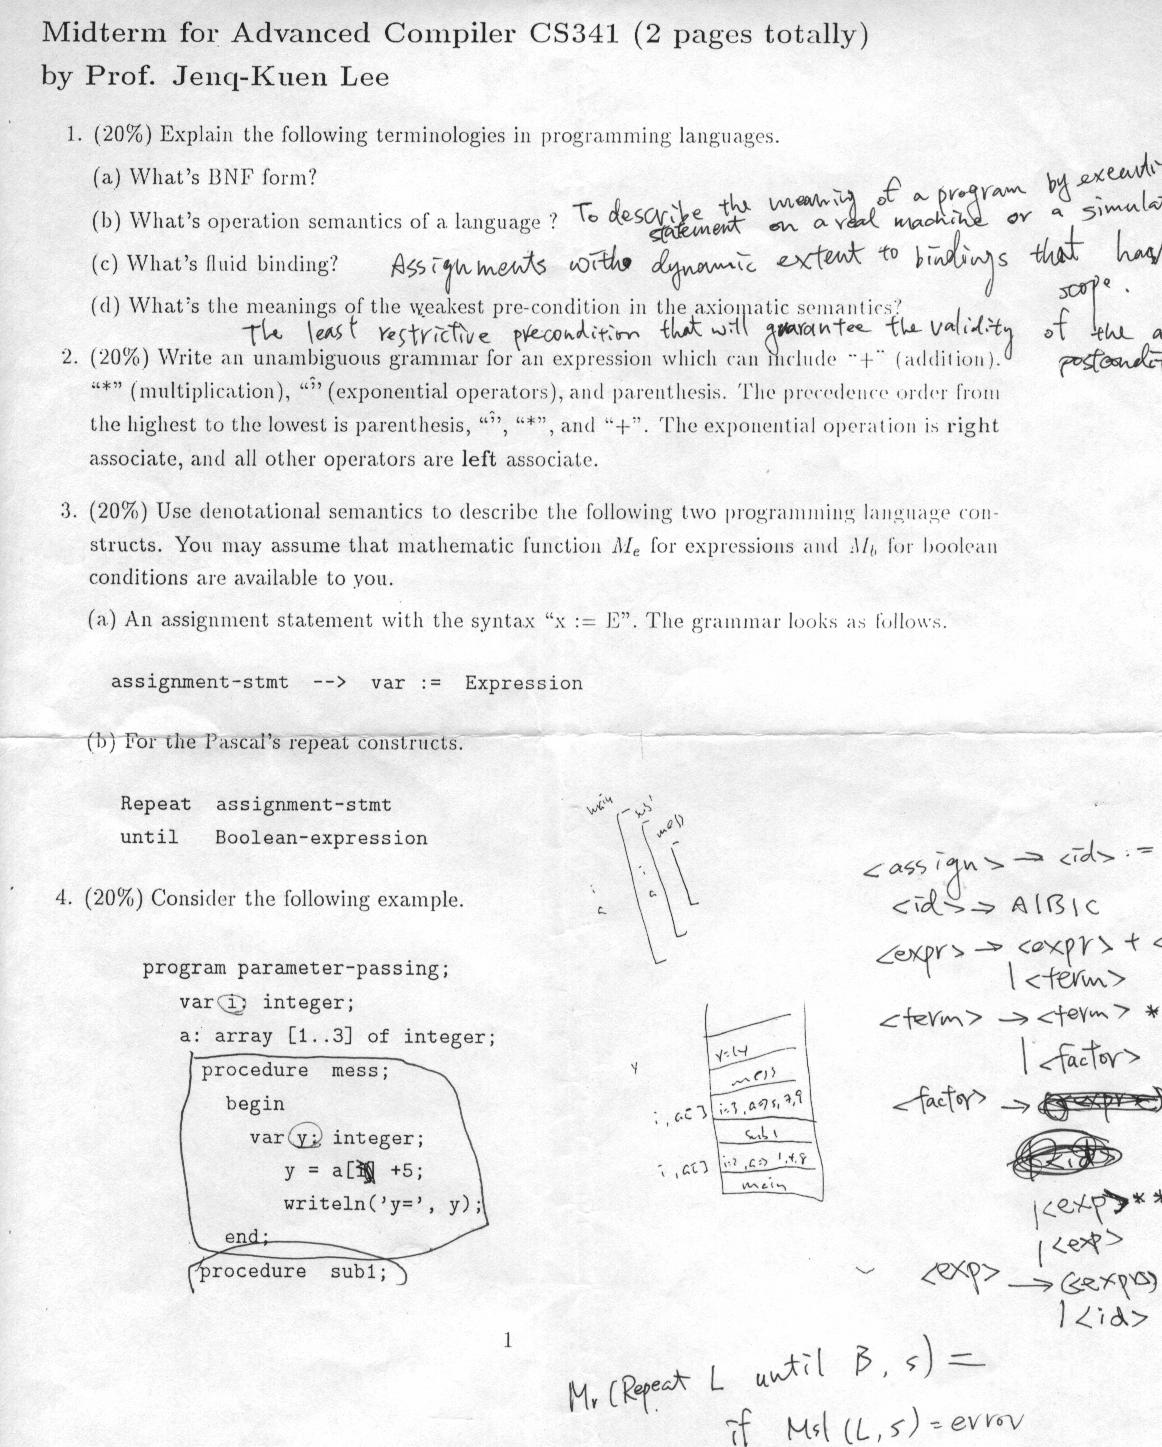 Midterm for Advanced Compiler CS341 (2 pages totally)
by Prof. Jenq-Kuen Lee
1. (20%) Explain the following terminologies in programming languages.
(a) What's BNF form?
(b) What's operation semantics of a language ? To describe the meaning of a program by executi
statement on a real machine or a simula
(c) What's fluid binding? Assignments with dynamic extent to bindings that has
scope.
(d) What's the meanings of the weakest pre-condition in the axiomatic semantics?
The least restrictive precondition that will guarantee the validity of the a
postcondi
2. (20%) Write an unambiguous grammar for an expression which can include "+" (addition).
"*" (multiplication), "^" (exponential operators), and parenthesis. The precedence order from
the highest to the lowest is parenthesis, "^", "*", and "+". The exponential operation is right
associate, and all other operators are left associate.
3. (20%) Use denotational semantics to describe the following two programming language con-
structs. You may assume that mathematic function Me for expressions and Mb for boolean
conditions are available to you.
(a) An assignment statement with the syntax "x := E". The grammar looks as follows.
assignment-stmt --> var := Expression
(b) For the Pascal's repeat constructs.
Repeat assignment-stmt
until Boolean-expression
main
mess
i
a
4. (20%) Consider the following example.
program parameter-passing;
var i; integer;
a: array [1..3] of integer;
procedure mess;
begin
var y; integer;
y = a[ ] +5;
writeln('y=', y);
end;
procedure sub1;
y
y=14
mess
i, a[] i=3, a=>5,7,9
sub1
i, a[] i=2, a=> 1,4,8
main
<assign> → <id> :=
<id> → A|B|C
<expr> → <expr> + <
| <term>
<term> → <term> *
| <factor>
<factor> →
| <exp> **
| <exp>
<exp> → (<expr>)
| <id>
1
Mr (Repeat L until B, s) =
if Msl (L, s) = error